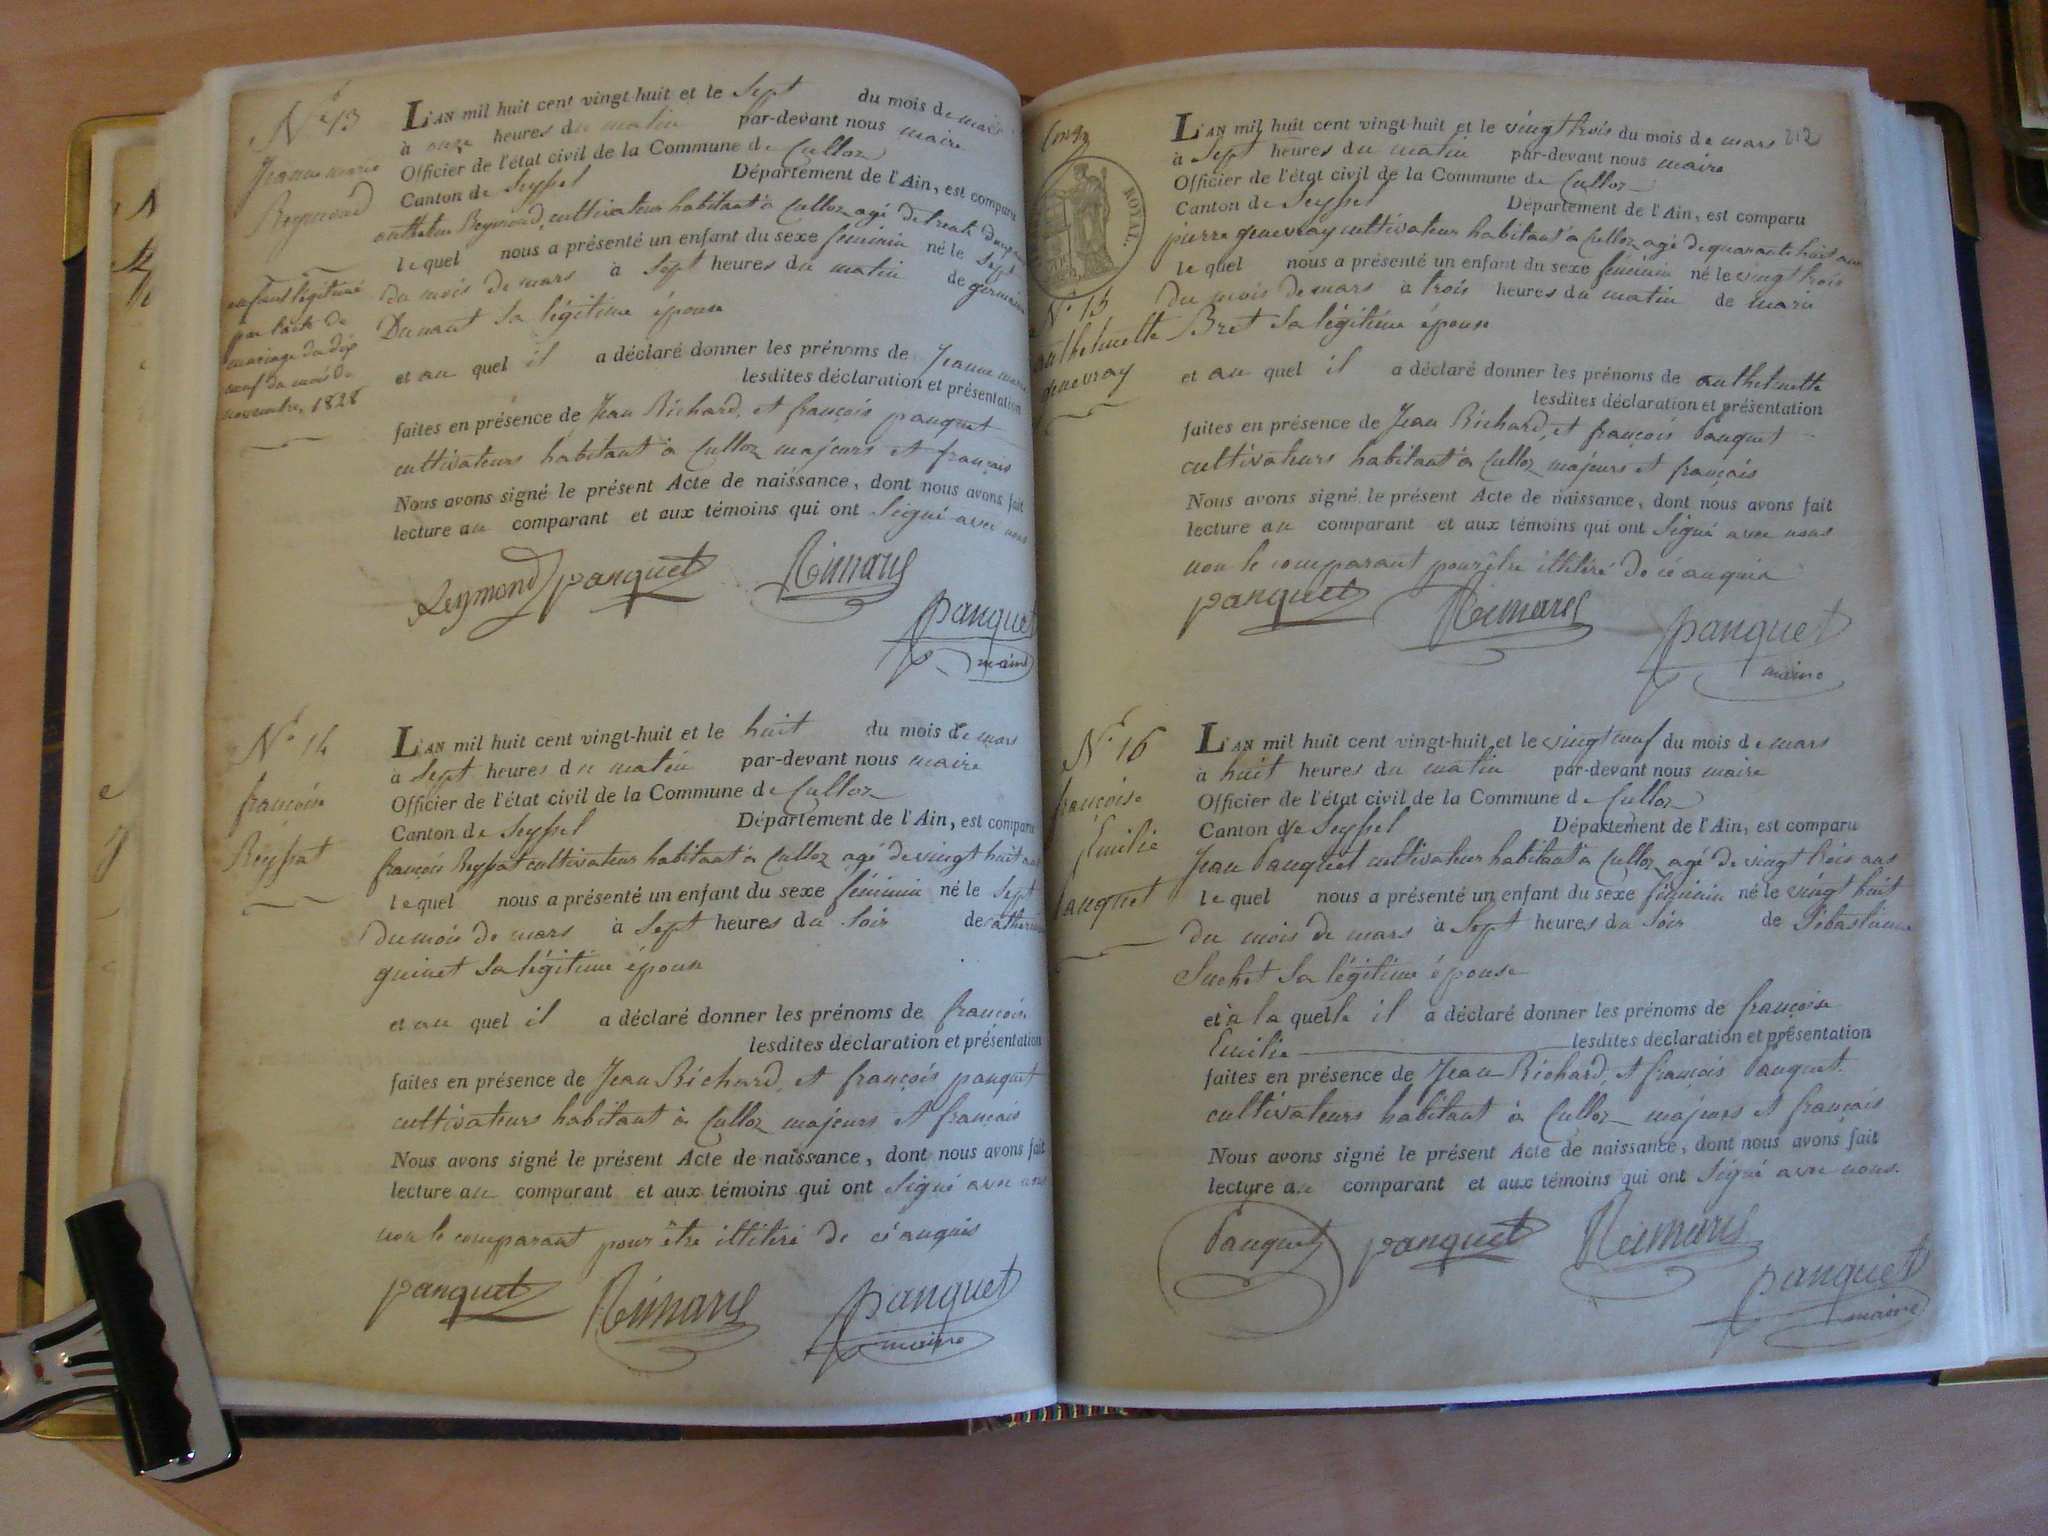 N° 13
Jeanne marie
Reymond
enfant légitimé
par l'acte de
mariage du dix
neuf du mois de
novembre, 1828
L'AN mil huit cent vingt-huit et le Sept du mois de mars
à onze heures du matin par-devant nous maire
Officier de l'état civil de la Commune de Culloz
Canton de Seyssel Département de l'Ain, est comparu
anthelme Reymond, cultivateur habitant à Culloz agé de trente
le quel nous a présenté un enfant du sexe féminin né le Sept
du mois de mars à Sept heures du matin de germaine
Dunant Sa légitime épouse
et au quel il a déclaré donner les prénoms de Jeanne marie
lesdites déclaration et présentation
faites en présence de Jean Richard, et françois panquet
cultivateurs habitant à Culloz majeurs et français
Nous avons signé le présent Acte de naissance, dont nous avons fait
lecture au comparant et aux témoins qui ont Signé avec nous
Reymond panquet
panquet
maire
N° 14
françoise
Reyssat
L'AN mil huit cent vingt-huit et le huit du mois de mars
à Sept heures du matin par-devant nous maire
Officier de l'état civil de la Commune de Culloz
Canton de Seyssel Département de l'Ain, est comparu
françois Reyssat cultivateur habitant à Culloz agé de vingt huit ans
le quel nous a présenté un enfant du sexe féminin né le Sept
du mois de mars à Sept heures du Soir de catherine
guinet Sa légitime épouse
et au quel il a déclaré donner les prénoms de françoise
lesdites déclaration et présentation
faites en présence de Jean Richard, et françois panquet
cultivateurs habitant à Culloz majeurs et français
Nous avons signé le présent Acte de naissance, dont nous avons fait
lecture au comparant et aux témoins qui ont Signé avec nous
non le comparant pour être illitéré de ce enquis
panquet panquet
maire
212
ROYAL.
N° 15
anthelmette
genevray
L'AN mil huit cent vingt-huit et le vingt trois du mois de mars
à Sept heures du matin par-devant nous maire
Officier de l'état civil de la Commune de Culloz
Canton de Seyssel Département de l'Ain, est comparu
pierre genevray cultivateur habitant à Culloz agé de quarante huit ans
le quel nous a présenté un enfant du sexe féminin né le vingt trois
du mois de mars à trois heures du matin de marie
Bret Sa légitime épouse
et au quel il a déclaré donner les prénoms de anthelmette
lesdites déclaration et présentation
faites en présence de Jean Richard, et françois Panquet
cultivateurs habitant à Culloz majeurs et français
Nous avons signé le présent Acte de naissance, dont nous avons fait
lecture au comparant et aux témoins qui ont Signé avec nous
non le comparant pour être illitéré de ce enquis
panquet panquet
maire
N° 16
françoise
Emilie
Panquet
L'AN mil huit cent vingt-huit et le vingt neuf du mois de mars
à huit heures du matin par-devant nous maire
Officier de l'état civil de la Commune de Culloz
Canton de Seyssel Département de l'Ain, est comparu
Jean Panquet cultivateur habitant à Culloz agé de vingt trois ans
le quel nous a présenté un enfant du sexe féminin né le vingt huit
du mois de mars à Sept heures du Soir de Sébastienne
Suchet Sa légitime épouse
et à la quelle il a déclaré donner les prénoms de françoise
Emilie lesdites déclaration et présentation
faites en présence de Jean Richard, et françois Panquet
cultivateurs habitant à Culloz majeurs et français
Nous avons signé le présent Acte de naissance, dont nous avons fait
lecture au comparant et aux témoins qui ont Signé avec nous
Panquet panquet
panquet
maire